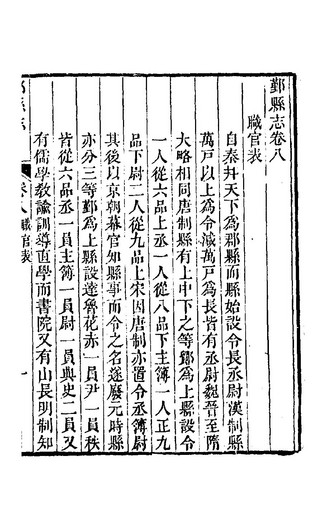 鄞縣志卷八
職官表
自秦幷天下爲郡縣而縣始設令長丞尉漢制縣
萬戸以上爲令減萬戸爲長皆有丞尉魏晉至隋
大略相同唐制縣有上中下之等鄮爲上縣設令
一人從六品上丞一人從八品下主簿一人正九
品下尉二人從九品上宋因唐制亦置令丞簿尉
其後以京朝幕官知縣事而令之名遂廢元時縣
亦分三等鄞爲上縣設達魯花赤一員尹一員秩
皆從六品丞一員主簿一員尉一員典史二員又
有儒學敎諭訓導直學而書院又有山長明制知
卷八 職官表
一